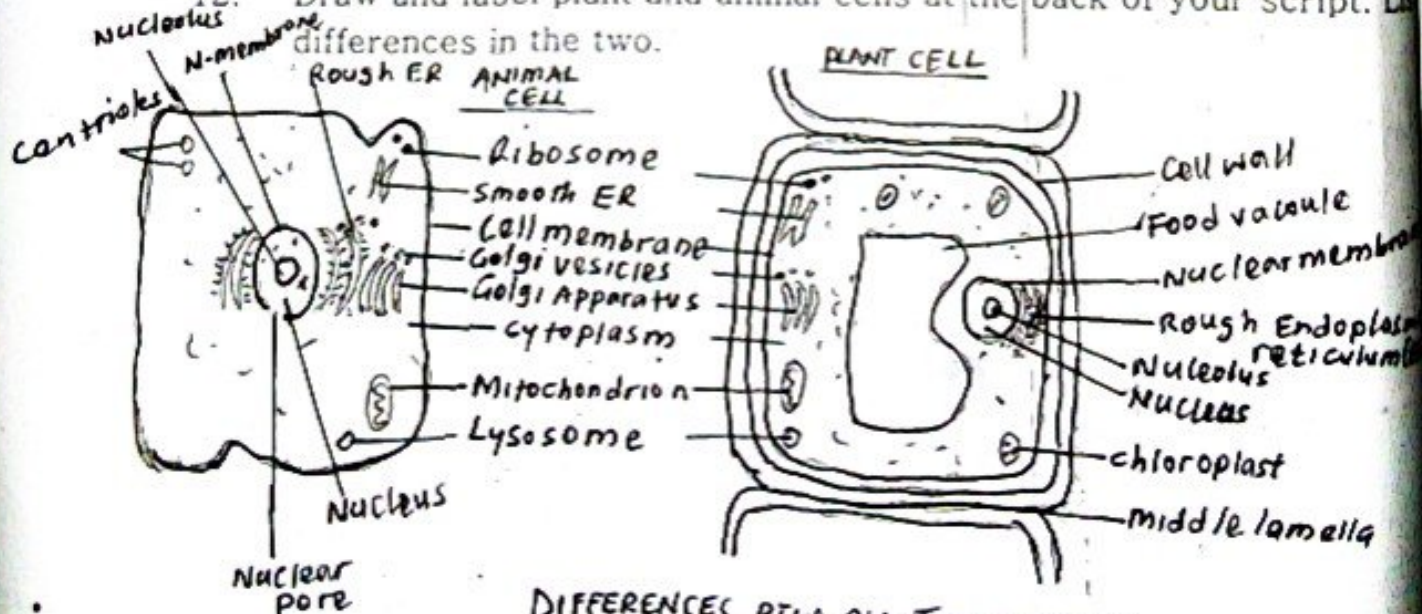 12. Draw and label plant and animal cells at the back of your script.
differences in the two.
Nucleolus
N-membrane
Rough ER
ANIMAL
CELL
Centrioles
Ribosome
Smooth ER
Cell membrane
Golgi vesicles
Golgi Apparatus
cytoplasm
Mitochondrion
Lysosome
Nucleus
Nuclear
pore
PLANT CELL
Cell wall
Food vacoule
Nuclear
Rough
reticulum
Nuleolus
Nucleus
chloroplast
middle lamella
DIFFERENCES